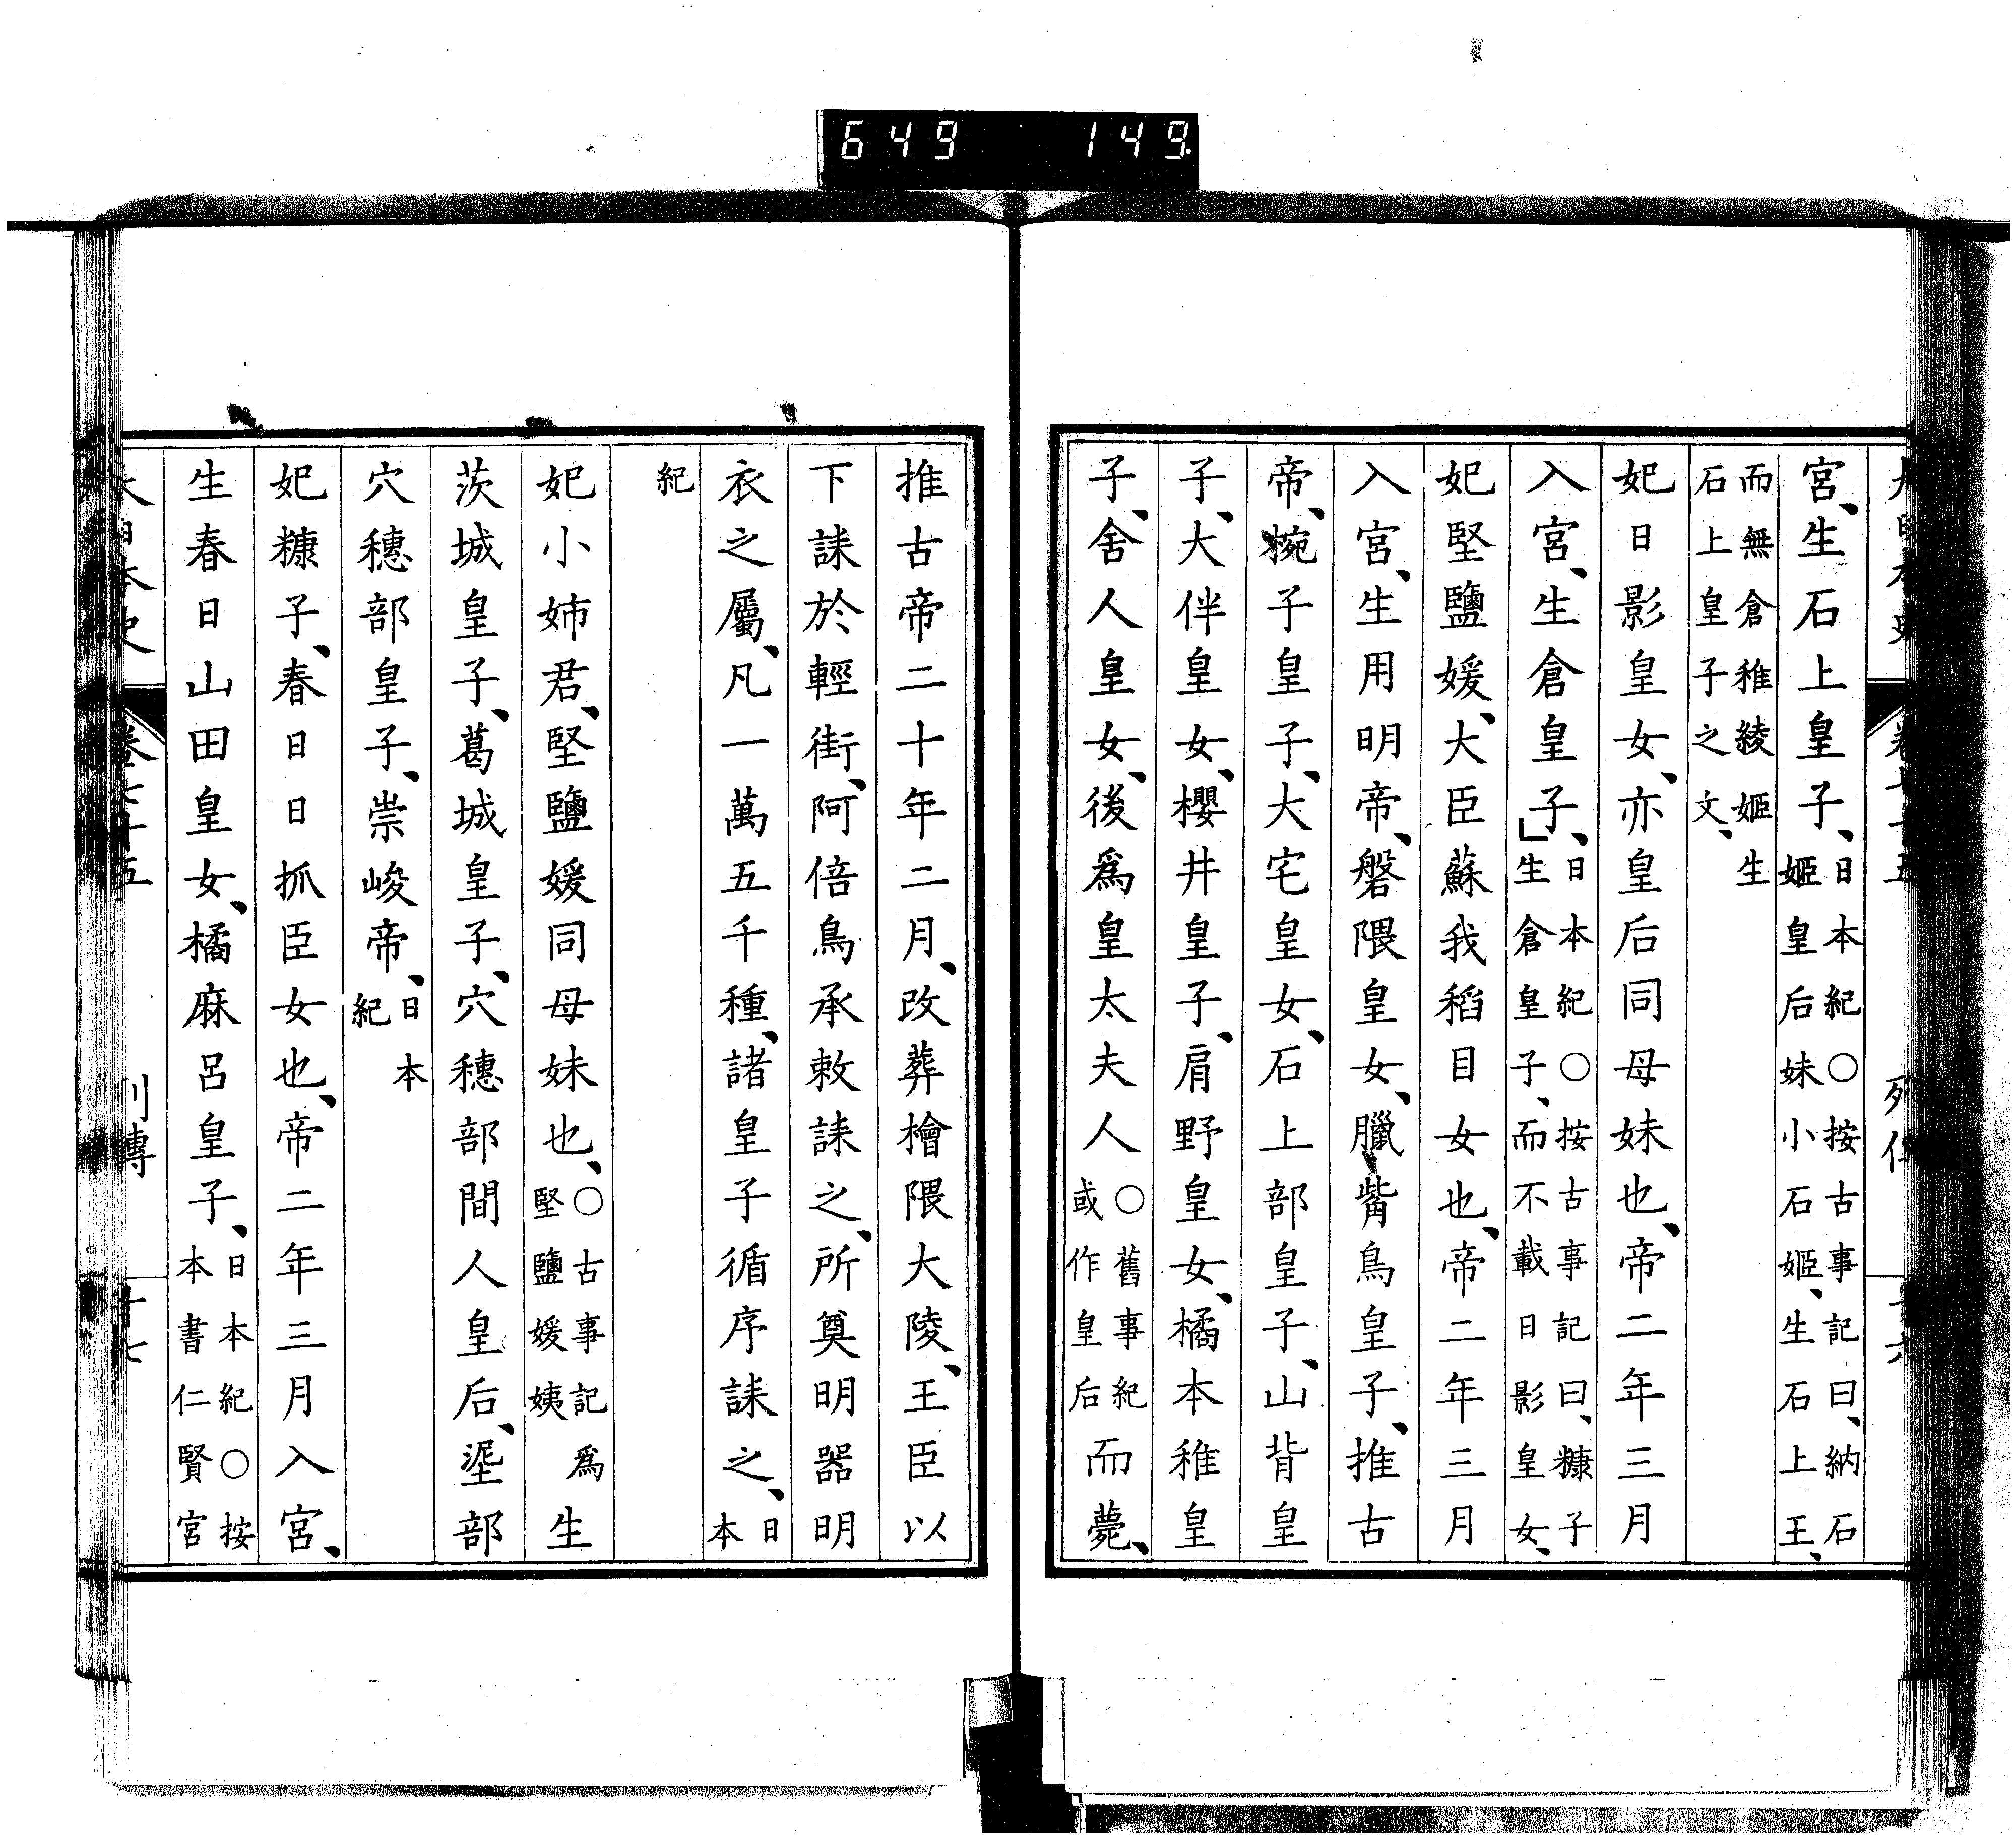 649 149
宮、生石上皇子、日本紀○按古事記曰、納石姬皇后妹小石姬、生石上王、
而無倉稚綾姬生石上皇子之文、
妃日影皇女、亦皇后同母妹也、帝二年三月
入宮、生倉皇子、日本紀○按古事記曰、糠子生倉皇子、而不載日影皇女、
妃堅鹽媛、大臣蘇我稻目女也、帝二年三月
入宮、生用明帝、磐隈皇女、臘觜鳥皇子、推古
帝、椀子皇子、大宅皇女、石上部皇子、山背皇
子、大伴皇女、櫻井皇子、肩野皇女、橘本稚皇
子、舍人皇女、後爲皇太夫人○舊事紀或作皇后而薨、
推古帝二十年二月、改葬檜隈大陵、王臣以
下誄於輕街、阿倍鳥承敕誄之、所奠明器明
衣之屬、凡一萬五千種、諸皇子循序誄之、日本
紀
妃小姉君、堅鹽媛同母妹也、○古事記爲堅鹽媛姨生
茨城皇子、葛城皇子、穴穗部間人皇后、埿部
穴穗部皇子、崇峻帝、日本紀
妃糠子、春日日抓臣女也、帝二年三月入宮、
生春日山田皇女、橘麻呂皇子、日本紀○按本書仁賢宮
大日本史 卷七十五 列傳 十七